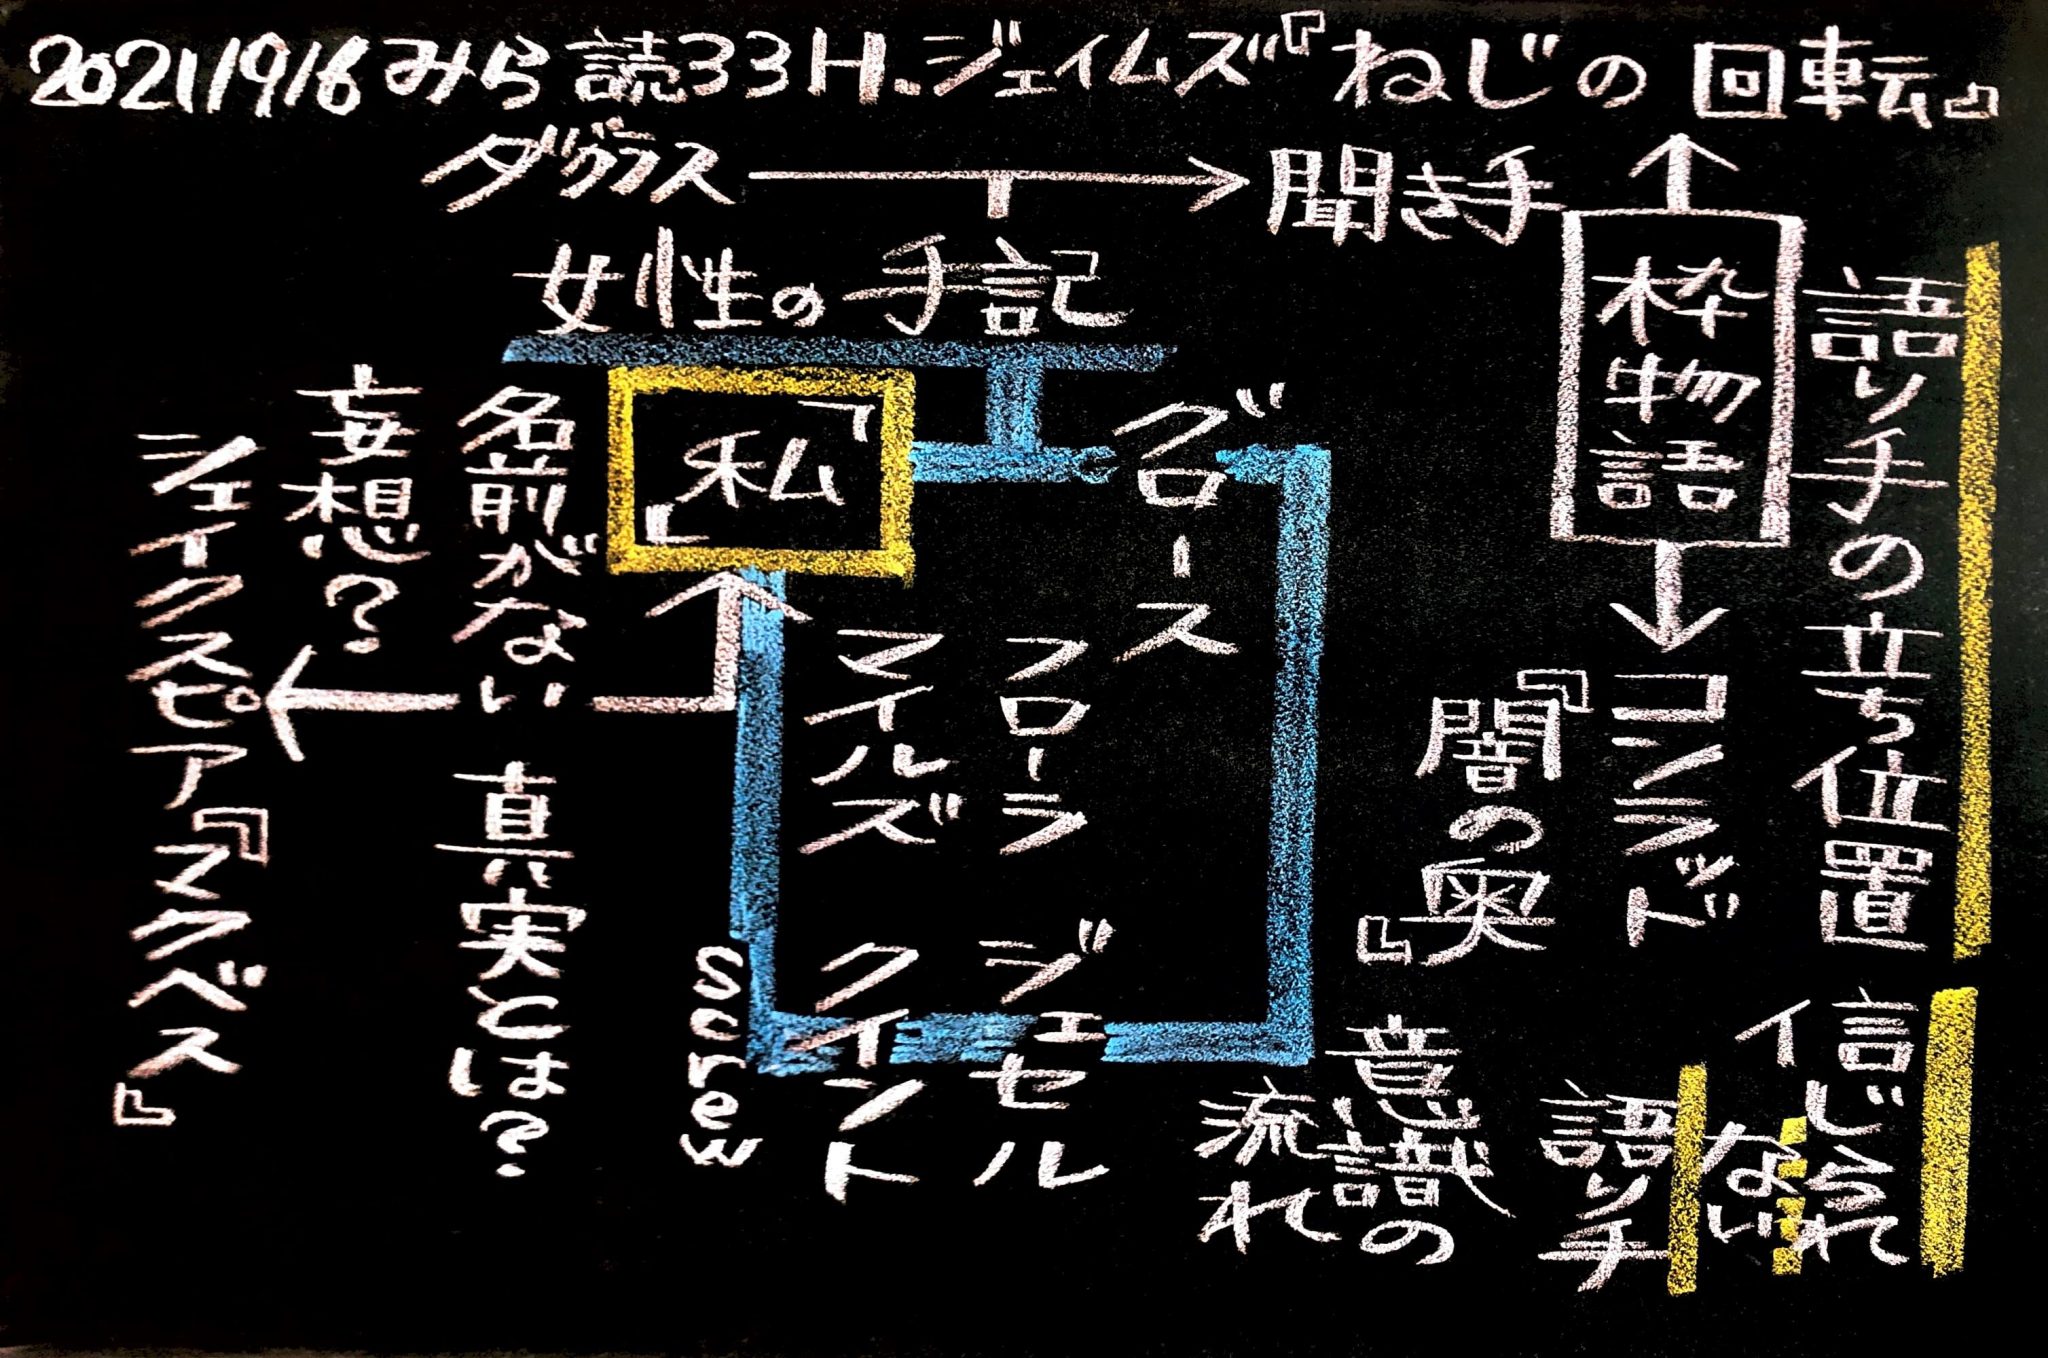 2021/9/6みら読33H.ジェイムズ『ねじの回転』
ダグラス
聞き手
女性の手記
枠物語
語り手の立ち位置
「私」
グロース
名前がない
妄想？
シェイクスピア『マクベス』
真実とは？
フローラ
マイルズ
ジェセル
クイント
screw
コンラッド
『闇の奥』
信じられ
ない
語り手
意識の
流れ